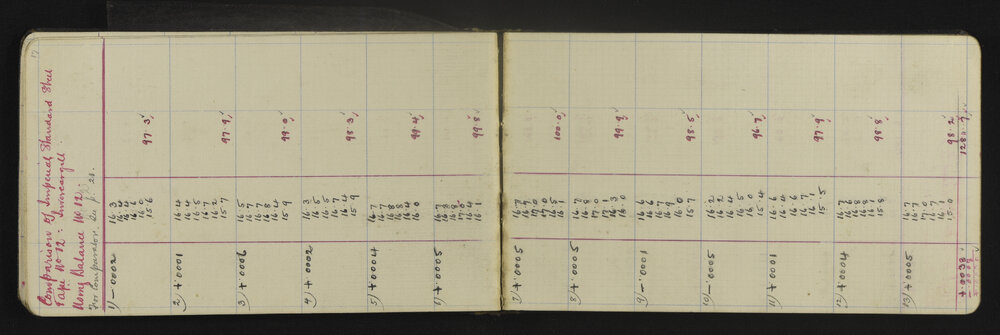 17
Comparison of Imperial Standard Steel
Tape No 12: Invercargill.
Using Balance No. 12:
For Comparator. See p. 23.
1) - 0002
16.3
16.4
16.4
16.6
16.0
15.6
97.3
2) + 0001
16.4
16.4
16.5
16.7
16.2
15.7
97.9
3) + 0006
16.5
16.7
16.7
16.8
16.4
15.9
99.0
4) + 0002
16.3
16.5
16.5
16.7
16.4
15.9
98.3
5) + 0004
16.7
16.7
16.8
16.8
16.4
16.0
99.4
+ 0005
16.7
16.8
16.8
17.0
16.4
16.1
99.8
7) + 0005
16.7
16.9
17.0
17.0
16.5
16.1
100.0
8) + 0005
16.7
16.8
17.0
17.0
16.3
16.0
99.9
9) - 0001
16.6
16.6
16.7
16.9
16.0
15.7
98.5
10) - 0005
16.2
16.2
16.4
16.5
16.0
15.4
96.7
11) + 0001
16.4
16.4
16.6
16.7
16.1
15.5
97.9
12) + 0004
16.7
16.6
16.8
16.8
16.1
15.8
98.8
13) + 0005
16.7
16.7
16.7
15.0
98.2
1280.9
+ .0038
- .0008